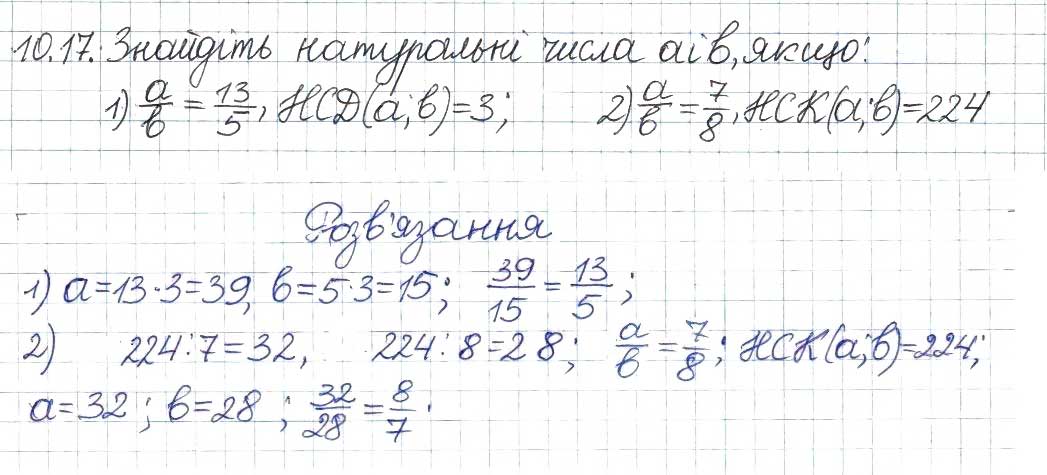 10.17. Знайдіть натуральні числа a і b, якщо:
1) a/b = 13/5, НСД(a;b)=3; 2) a/b = 7/8, НСК(a;b)=224
Розв'язання
1) a=13·3=39, b=5·3=15; 39/15 = 13/5;
2) 224:7=32, 224:8=28; a/b = 7/8; НСК(a;b)=224;
a=32; b=28; 32/28 = 8/7.